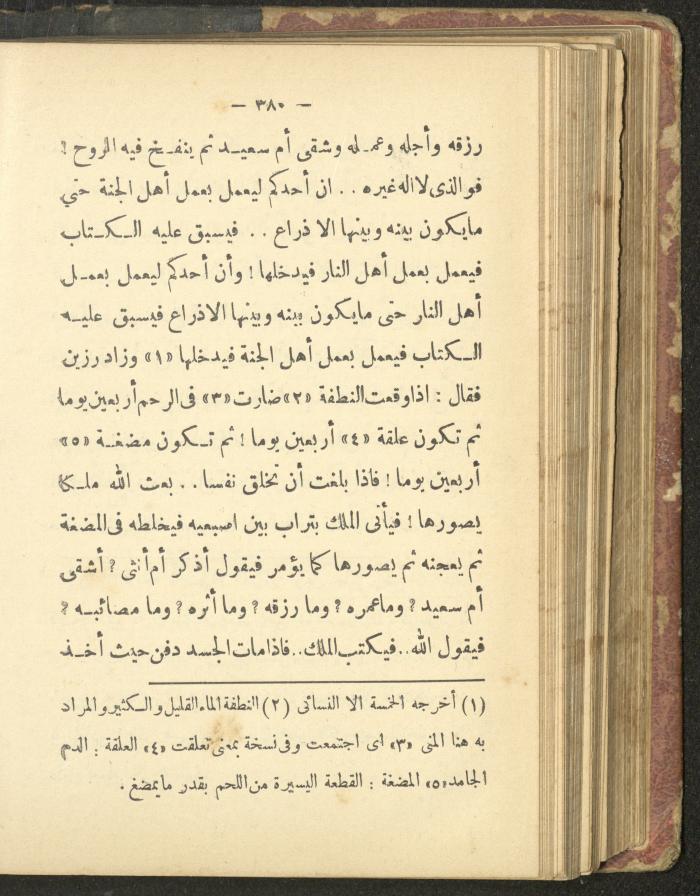 — ٣٨٠ —
رزقه وأجله وعمله وشقى أم سعيد ثم ينفخ فيه الروح !
فوالذى لا اله غيره . . ان أحدكم ليعمل بعمل أهل الجنة حتي
مايكون بينه وبينها الا ذراع . . فيسبق عليه الكتاب
فيعمل بعمل أهل النار فيدخلها ! وأن أحدكم ليعمل بعمل
أهل النار حتى مايكون بينه وبينها الاذراع فيسبق عليه
الكتاب فيعمل بعمل أهل الجنة فيدخلها «١» وزاد رزين
فقال : اذا وقعت النطفة «٢» صارت «٣» فى الرحم أربعين يوما
ثم تكون علقة «٤» أربعين يوما ! ثم تكون مضغة «٥»
أربعين يوما ! فاذا بلغت أن تخلق نفسا . . بعث الله ملكا
يصورها ! فيأتى الملك بتراب بين اصبعيه فيخلطه فى المضغة
ثم يعجنه ثم يصورها كما يؤمر فيقول أذكر أم أنثى ؟ أشقى
أم سعيد ؟ وما عمره ؟ وما رزقه ؟ وما أثره ؟ وما مصائبه ؟
فيقول الله . . فيكتب الملك . . فاذا مات الجسد دفن حيث أخذ
(١) أخرجه الخمسة الا النسائى (٢) النطفة الماء القليل والكثير والمراد
به هنا المنى «٣» اى اجتمعت وفى نسخة بمعنى تعلقت «٤» العلقة : الدم
الجامد «٥» المضغة : القطعة اليسيرة من اللحم بقدر مايمضغ .